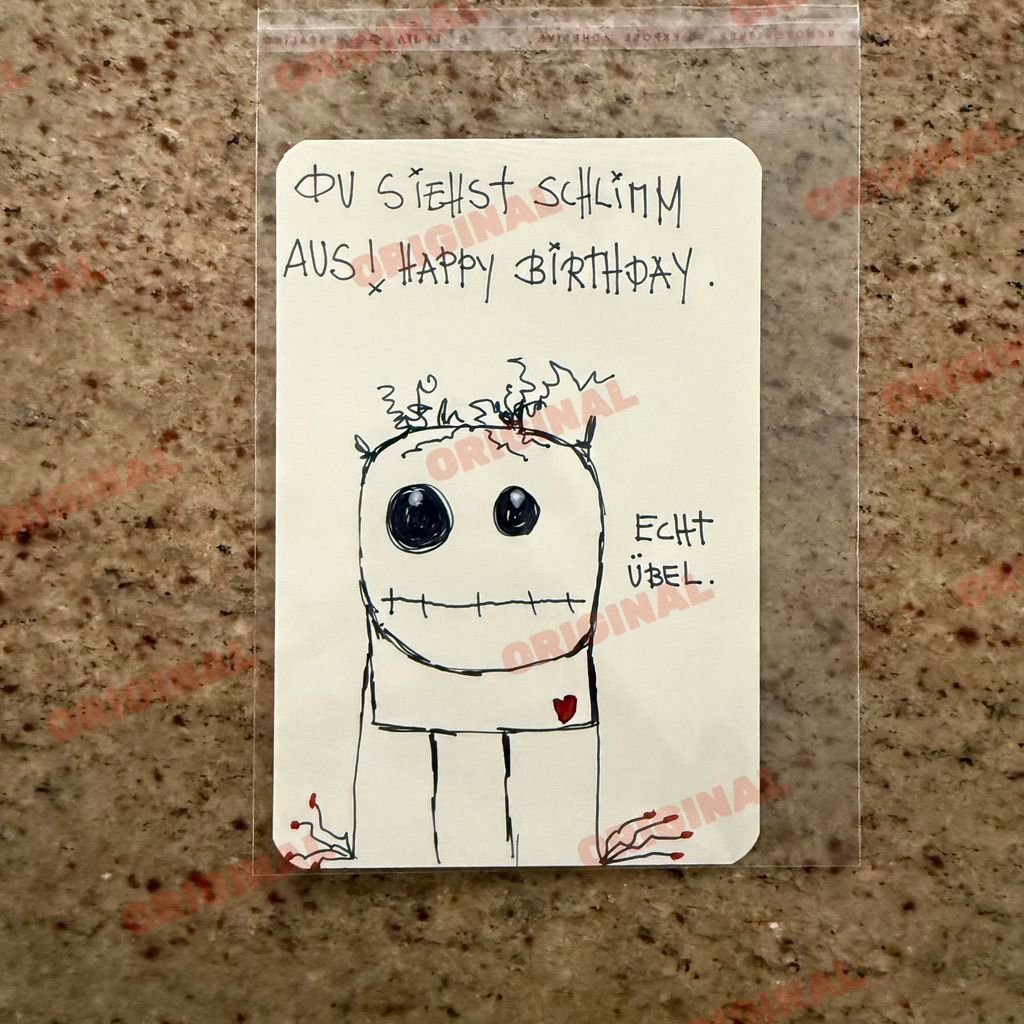 DU SIEHST SCHLIMM
AUS! HAPPY BIRTHDAY.
ECHT
ÜBEL.
ORIGINAL
ORIGINAL
ORIGINAL
ORIGINAL
ORIGINAL
ORIGINAL
ORIGINAL
ORIGINAL
ORIGINAL
ORIGINAL
ORIGINAL
ORIGINAL